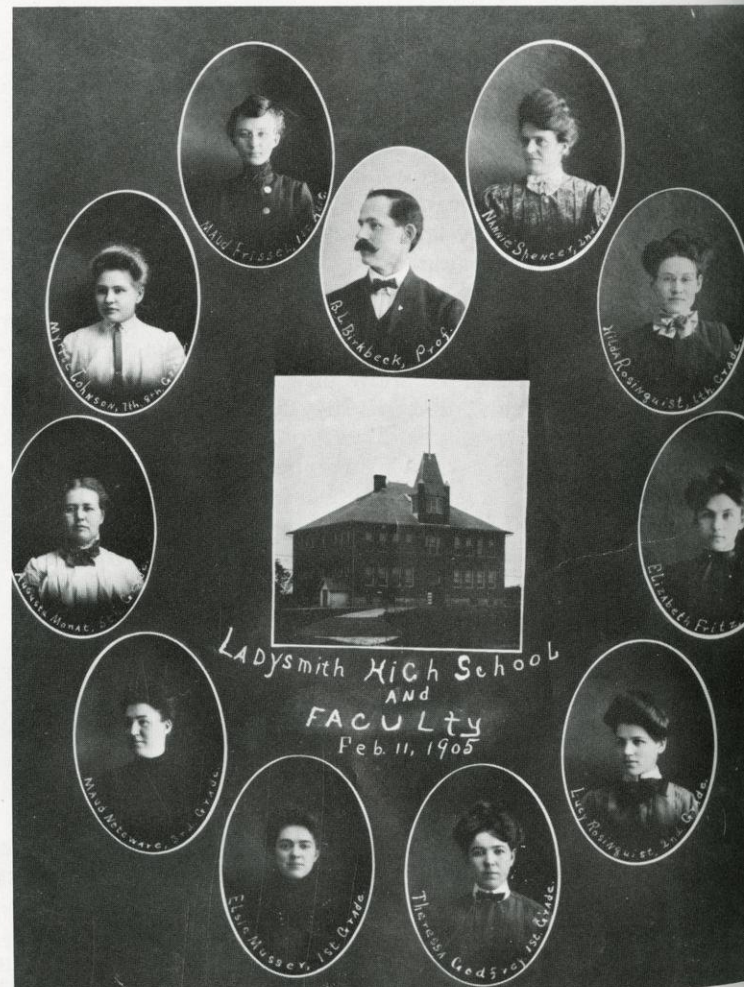 Maud Frissel, 1st
Nannie Spencer, 2nd
B.L. Birkbeck, Prof.
Myrtle Johnson, 7th. 8th. Grade.
Hilda Rosinquist, 6th. Grade.
Augusta Monat, 5th. Grade.
Elizabeth Fritz
LADysmith HiGh School
AND
FACULty
Feb. 11, 1905
Maud Noteware, 3rd Grade.
Lucy Rosinquist, 2nd Grade.
Elsie Musser, 1st Grade.
Theressa Godfray 1st Grade.